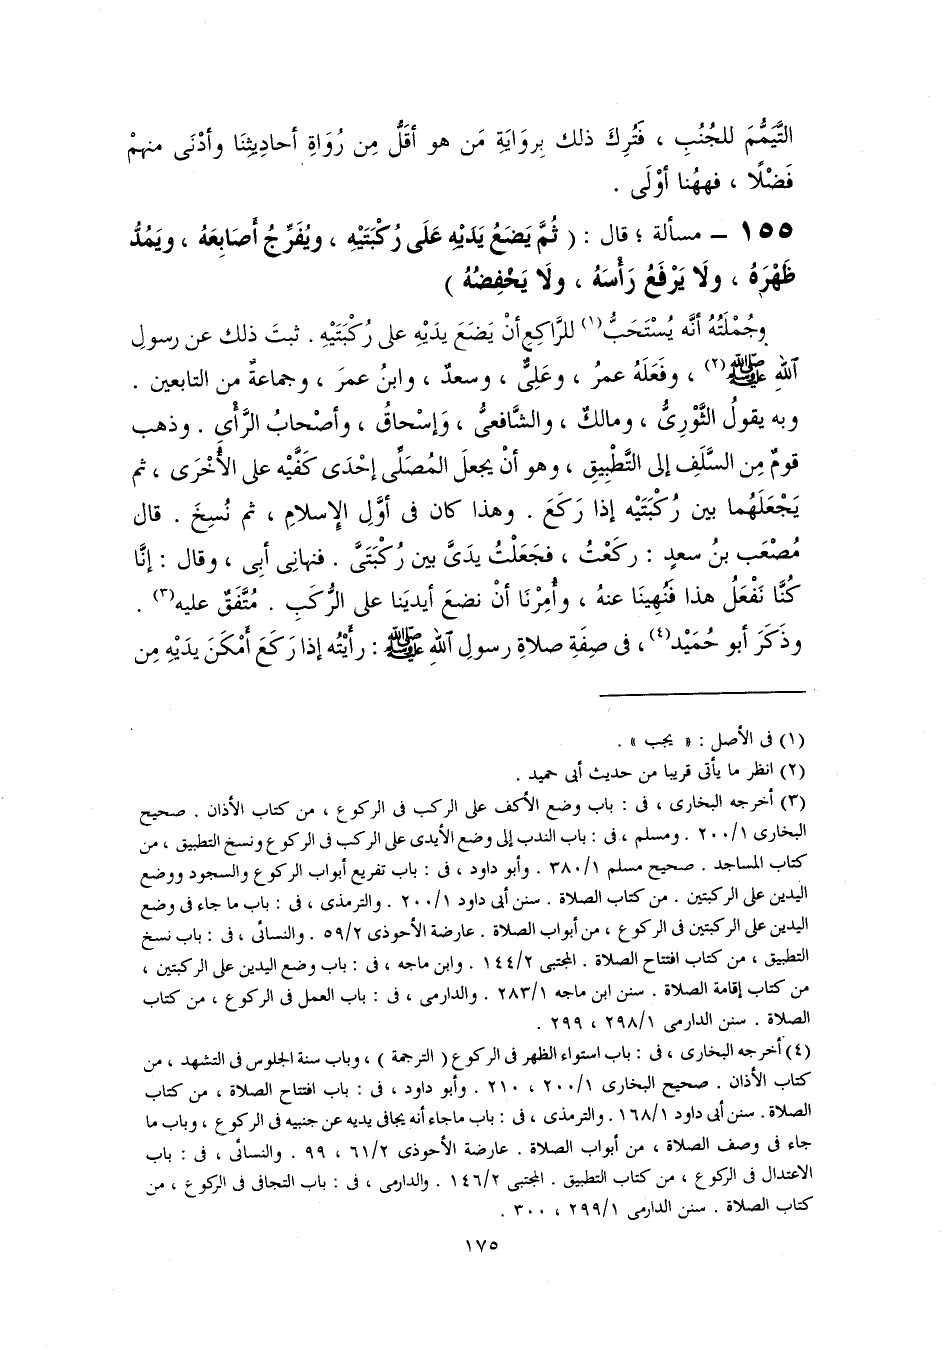 التَّيَمُّمَ للجُنُبِ ، فَتُرِكَ ذلك بِروَايَةِ مَن هو أقَلُّ مِن رُوَاةِ أحادِيثِنَا وأدْنَى منهمْ
فَضْلًا ، فههُنا أوْلَى .
١٥٥ – مسألة ؛ قال : ( ثُمَّ يَضَعُ يَدَيْهِ عَلَى رُكْبَتَيْهِ ، ويُفَرِّجُ أَصَابِعَهُ ، ويَمُدُّ
ظَهْرَهُ ، ولَا يَرْفَعُ رَأْسَهُ ، ولَا يَخْفِضُهُ )
وجُمْلَتُهُ أنَّه يُسْتَحَبُّ(١) للرَّاكِعِ أنْ يَضَعَ يدَيْهِ على رُكْبَتَيْهِ . ثبتَ ذلك عن رسولِ
اللهِ ﷺ(٢) ، وفَعَلَهُ عمرُ ، وعَلِيٌّ ، وسعدٌ ، وابنُ عمرَ ، وجماعةٌ من التابعين .
وبه يقولُ الثَّوْرِيُّ ، ومالكٌ ، والشَّافعيُّ ، وَإسْحاقُ ، وأصْحابُ الرَّأْىِ . وذهب
قومٌ مِن السَّلَفِ إلى التَّطْبِيقِ ، وهو أنْ يجعلَ المُصَلِّى إحْدَى كَفَّيْه على الأُخْرَى ، ثم
يَجْعَلَهُما بين رُكْبَتَيْه إذا رَكَعَ . وهذا كان فى أوَّلِ الإسلامِ ، ثم نُسِخَ . قال
مُصْعَب بنُ سعدٍ : ركَعْتُ ، فجَعَلْتُ يدَىَّ بين رُكْبَتَىَّ . فنهانِى أبِى ، وقال : إنَّا
كُنَّا نَفْعَلُ هذا فَنُهِينَا عنهُ ، وأُمِرْنَا أنْ نضعَ أيدِيَنا على الرُّكَبِ . مُتَّفَقٌ عليه(٣) .
وذَكَرَ أبو حُمَيْد(٤) ، فى صِفَةِ صلاةِ رسولِ اللهِ ﷺ : رأَيْتُه إذا رَكَعَ أَمْكَنَ يدَيْهِ مِن
(١) فى الأصل : « يجب » .
(٢) انظر ما يأتى قريبا من حديث أبى حميد .
(٣) أخرجه البخارى ، فى : باب وضع الأكف على الركب فى الركوع ، من كتاب الأذان . صحيح
البخارى ١/٢٠٠ . ومسلم ، فى : باب الندب إلى وضع الأيدى على الركب فى الركوع ونسخ التطبيق ، من
كتاب المساجد . صحيح مسلم ١/٣٨٠ . وأبو داود ، فى : باب تفريع أبواب الركوع والسجود ووضع
اليدين على الركبتين . من كتاب الصلاة . سنن أبى داود ١/٢٠٠ . والترمذى ، فى : باب ما جاء فى وضع
اليدين على الركبتين فى الركوع ، من أبواب الصلاة . عارضة الأحوذى ٢/٥٩ . والنسائى ، فى : باب نسخ
التطبيق ، من كتاب افتتاح الصلاة . المجتبى ٢/١٤٤ . وابن ماجه ، فى : باب وضع اليدين على الركبتين ،
من كتاب إقامة الصلاة . سنن ابن ماجه ١/٢٨٣ . والدارمى ، فى : باب العمل فى الركوع ، من كتاب
الصلاة . سنن الدارمى ١/٢٩٨ ، ٢٩٩ .
(٤) أخرجه البخارى ، فى : باب استواء الظهر فى الركوع ( الترجمة ) ، وباب سنة الجلوس فى التشهد ، من
كتاب الأذان . صحيح البخارى ١/٢٠٠ ، ٢١٠ . وأبو داود ، فى : باب افتتاح الصلاة ، من كتاب
الصلاة . سنن أبى داود ١/١٦٨ . والترمذى ، فى : باب ماجاء أنه يجافى يديه عن جنبيه فى الركوع ، وباب ما
جاء فى وصف الصلاة ، من أبواب الصلاة . عارضة الأحوذى ٢/٦١ ، ٩٩ . والنسائى ، فى : باب
الاعتدال فى الركوع ، من كتاب التطبيق . المجتبى ٢/١٤٦ . والدارمى ، فى : باب التجافى فى الركوع ، من
كتاب الصلاة . سنن الدارمى ١/٢٩٩ ، ٣٠٠ .
١٧٥